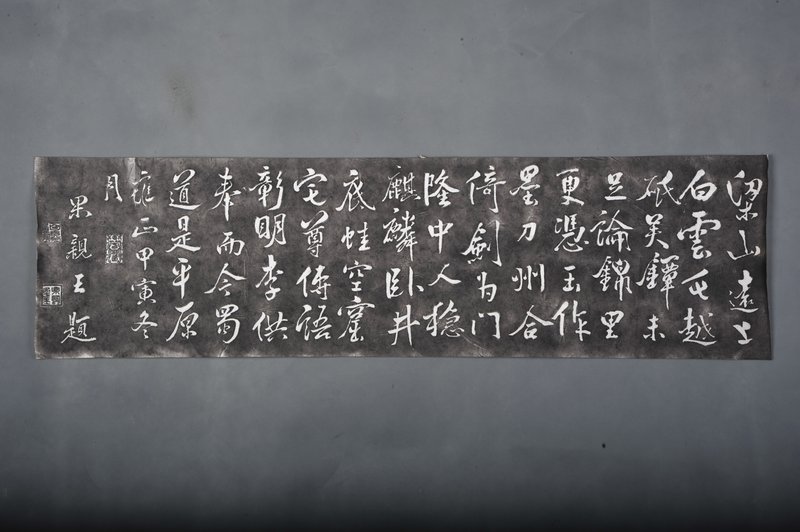 梁山遠上
白雲屯越
砥矣鐸未
足論錦里
更憑玉作
壘刀州合
倚劍為門
隆中人穩
麒麟臥井
底蛙空窟
宅尊傳語
彰明李供
奉而今蜀
道是平原
雍正甲寅冬
月
果親王題